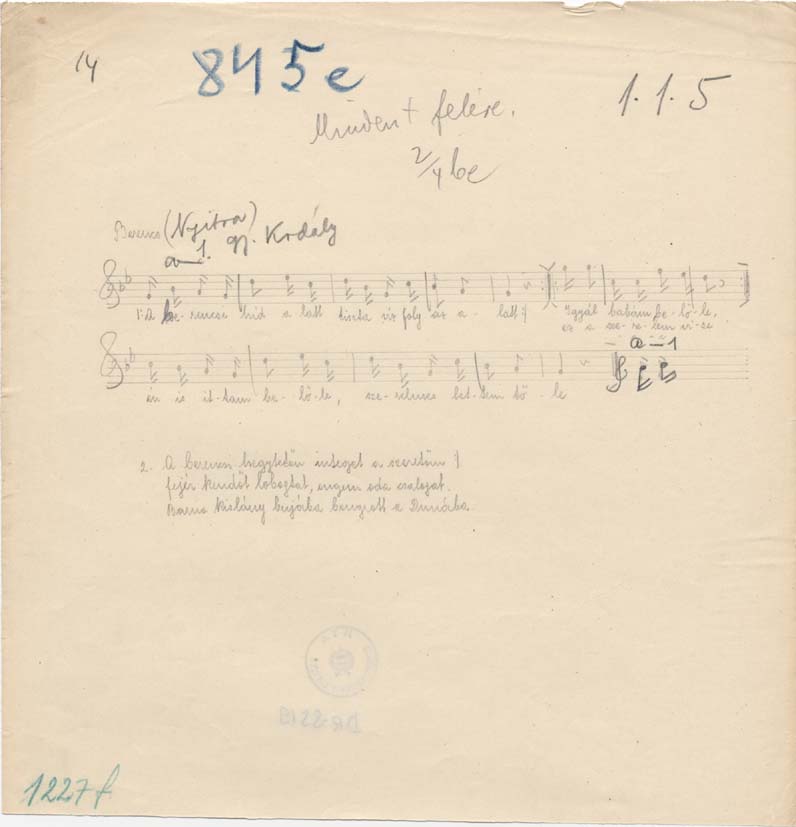 14
845e
1.1.5
Mindent felére.
2/4 be
Berencs (Nyitra)
a—1. gy. Kodály
1. A be-rencse híd a-latt tiszta víz foly az a-latt :/ Igyál babám be-lő-le,
ez a sze-re-lem vi-ze
a—1
én is it-tam be-lő-le, sze-relmes let-tem tő-le
2. A berencsi hegytetőn integet a szeretőm :/
fejér kendőt lobogtat, engem oda csalogat.
Barna kislány bújába beugrott a Dunába.
1227f